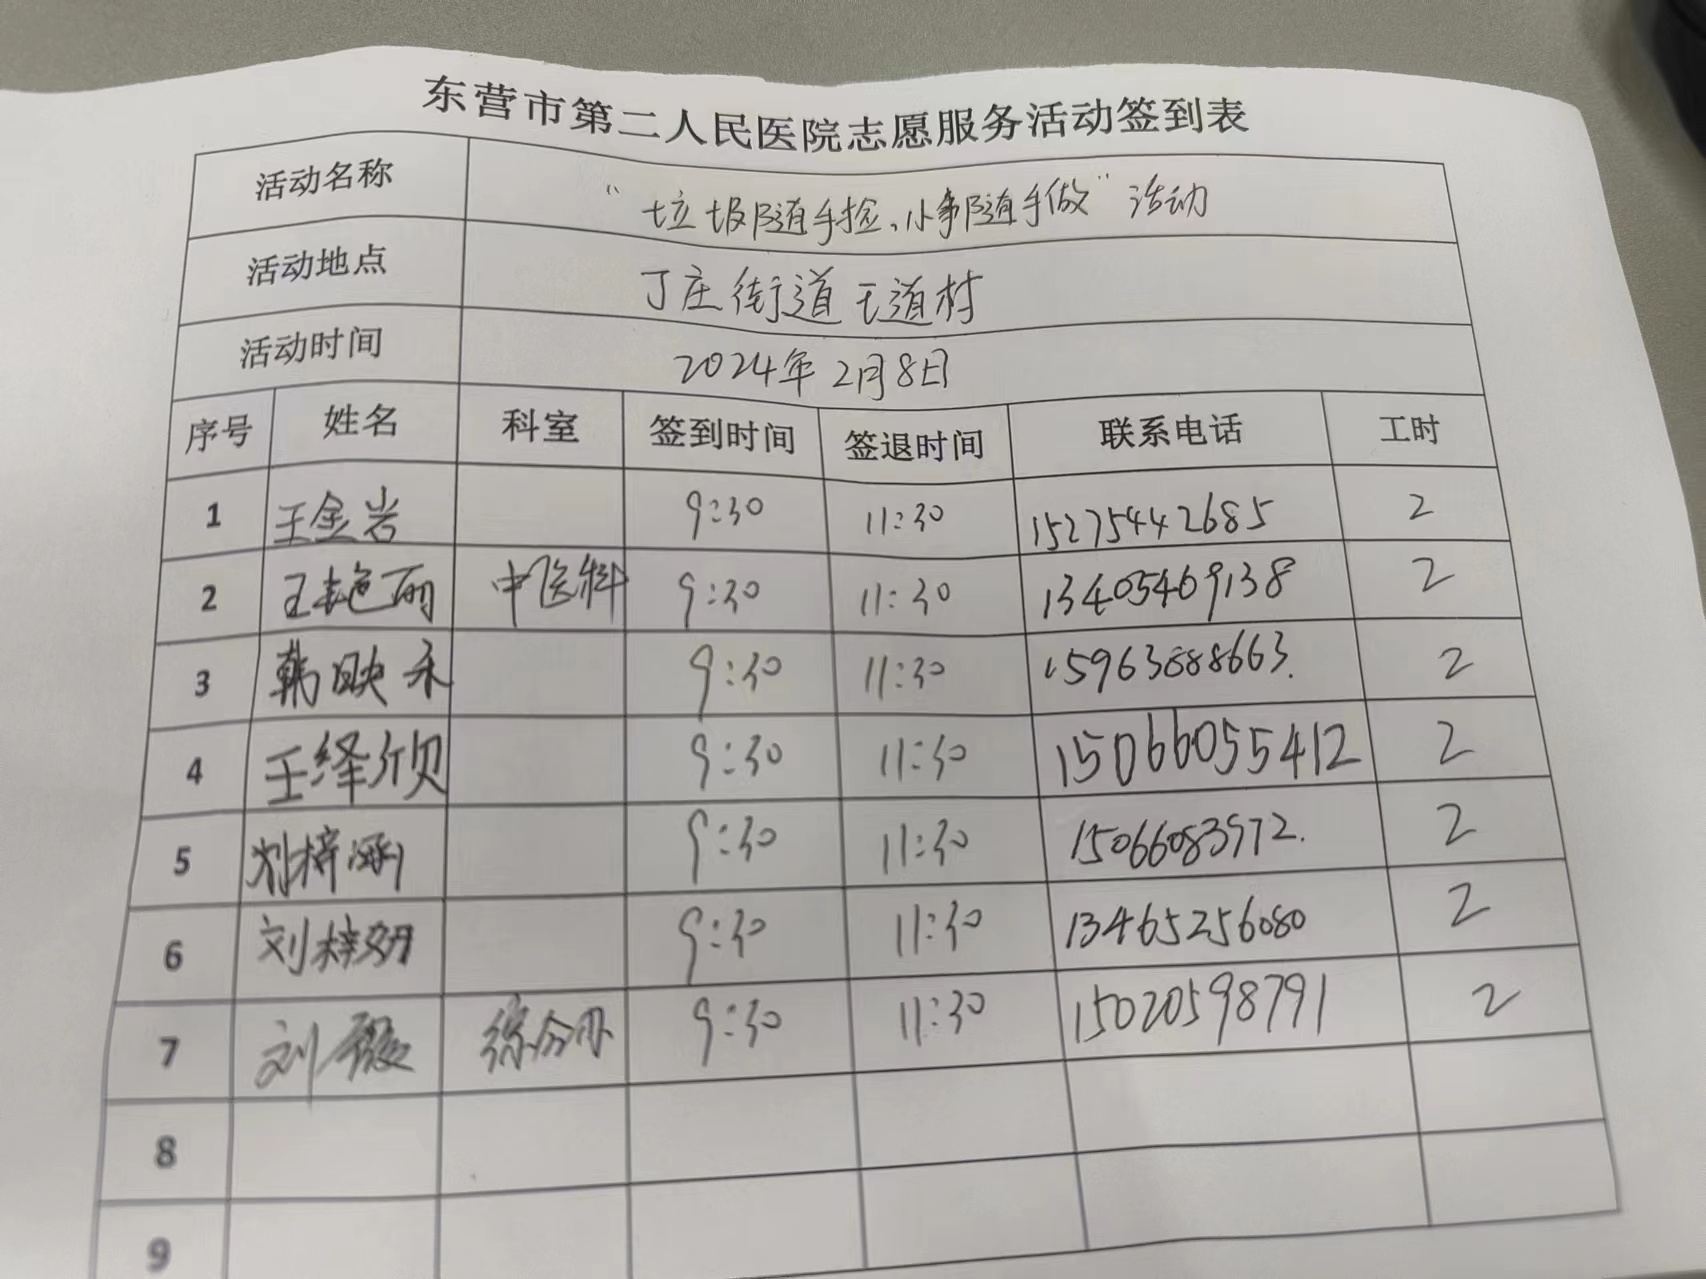 东营市第二人民医院志愿服务活动签到表
活动名称 “垃圾随手捡、小事随手做”活动
活动地点 丁庄街道王道村
活动时间 2024年2月8日
序号 姓名 科室 签到时间 签退时间 联系电话 工时
1 王金岩 9:30 11:30 15275442685 2
2 王艳丽 中医科 9:30 11:30 13405469138 2
3 韩映禾 9:30 11:30 15963888663. 2
4 王绎颁 9:30 11:30 15066055412 2
5 刘梓涵 9:30 11:30 15066083972. 2
6 刘梓妍 9:30 11:30 13465256080 2
7 刘 综合办 9:30 11:30 15020598791 2
8
9